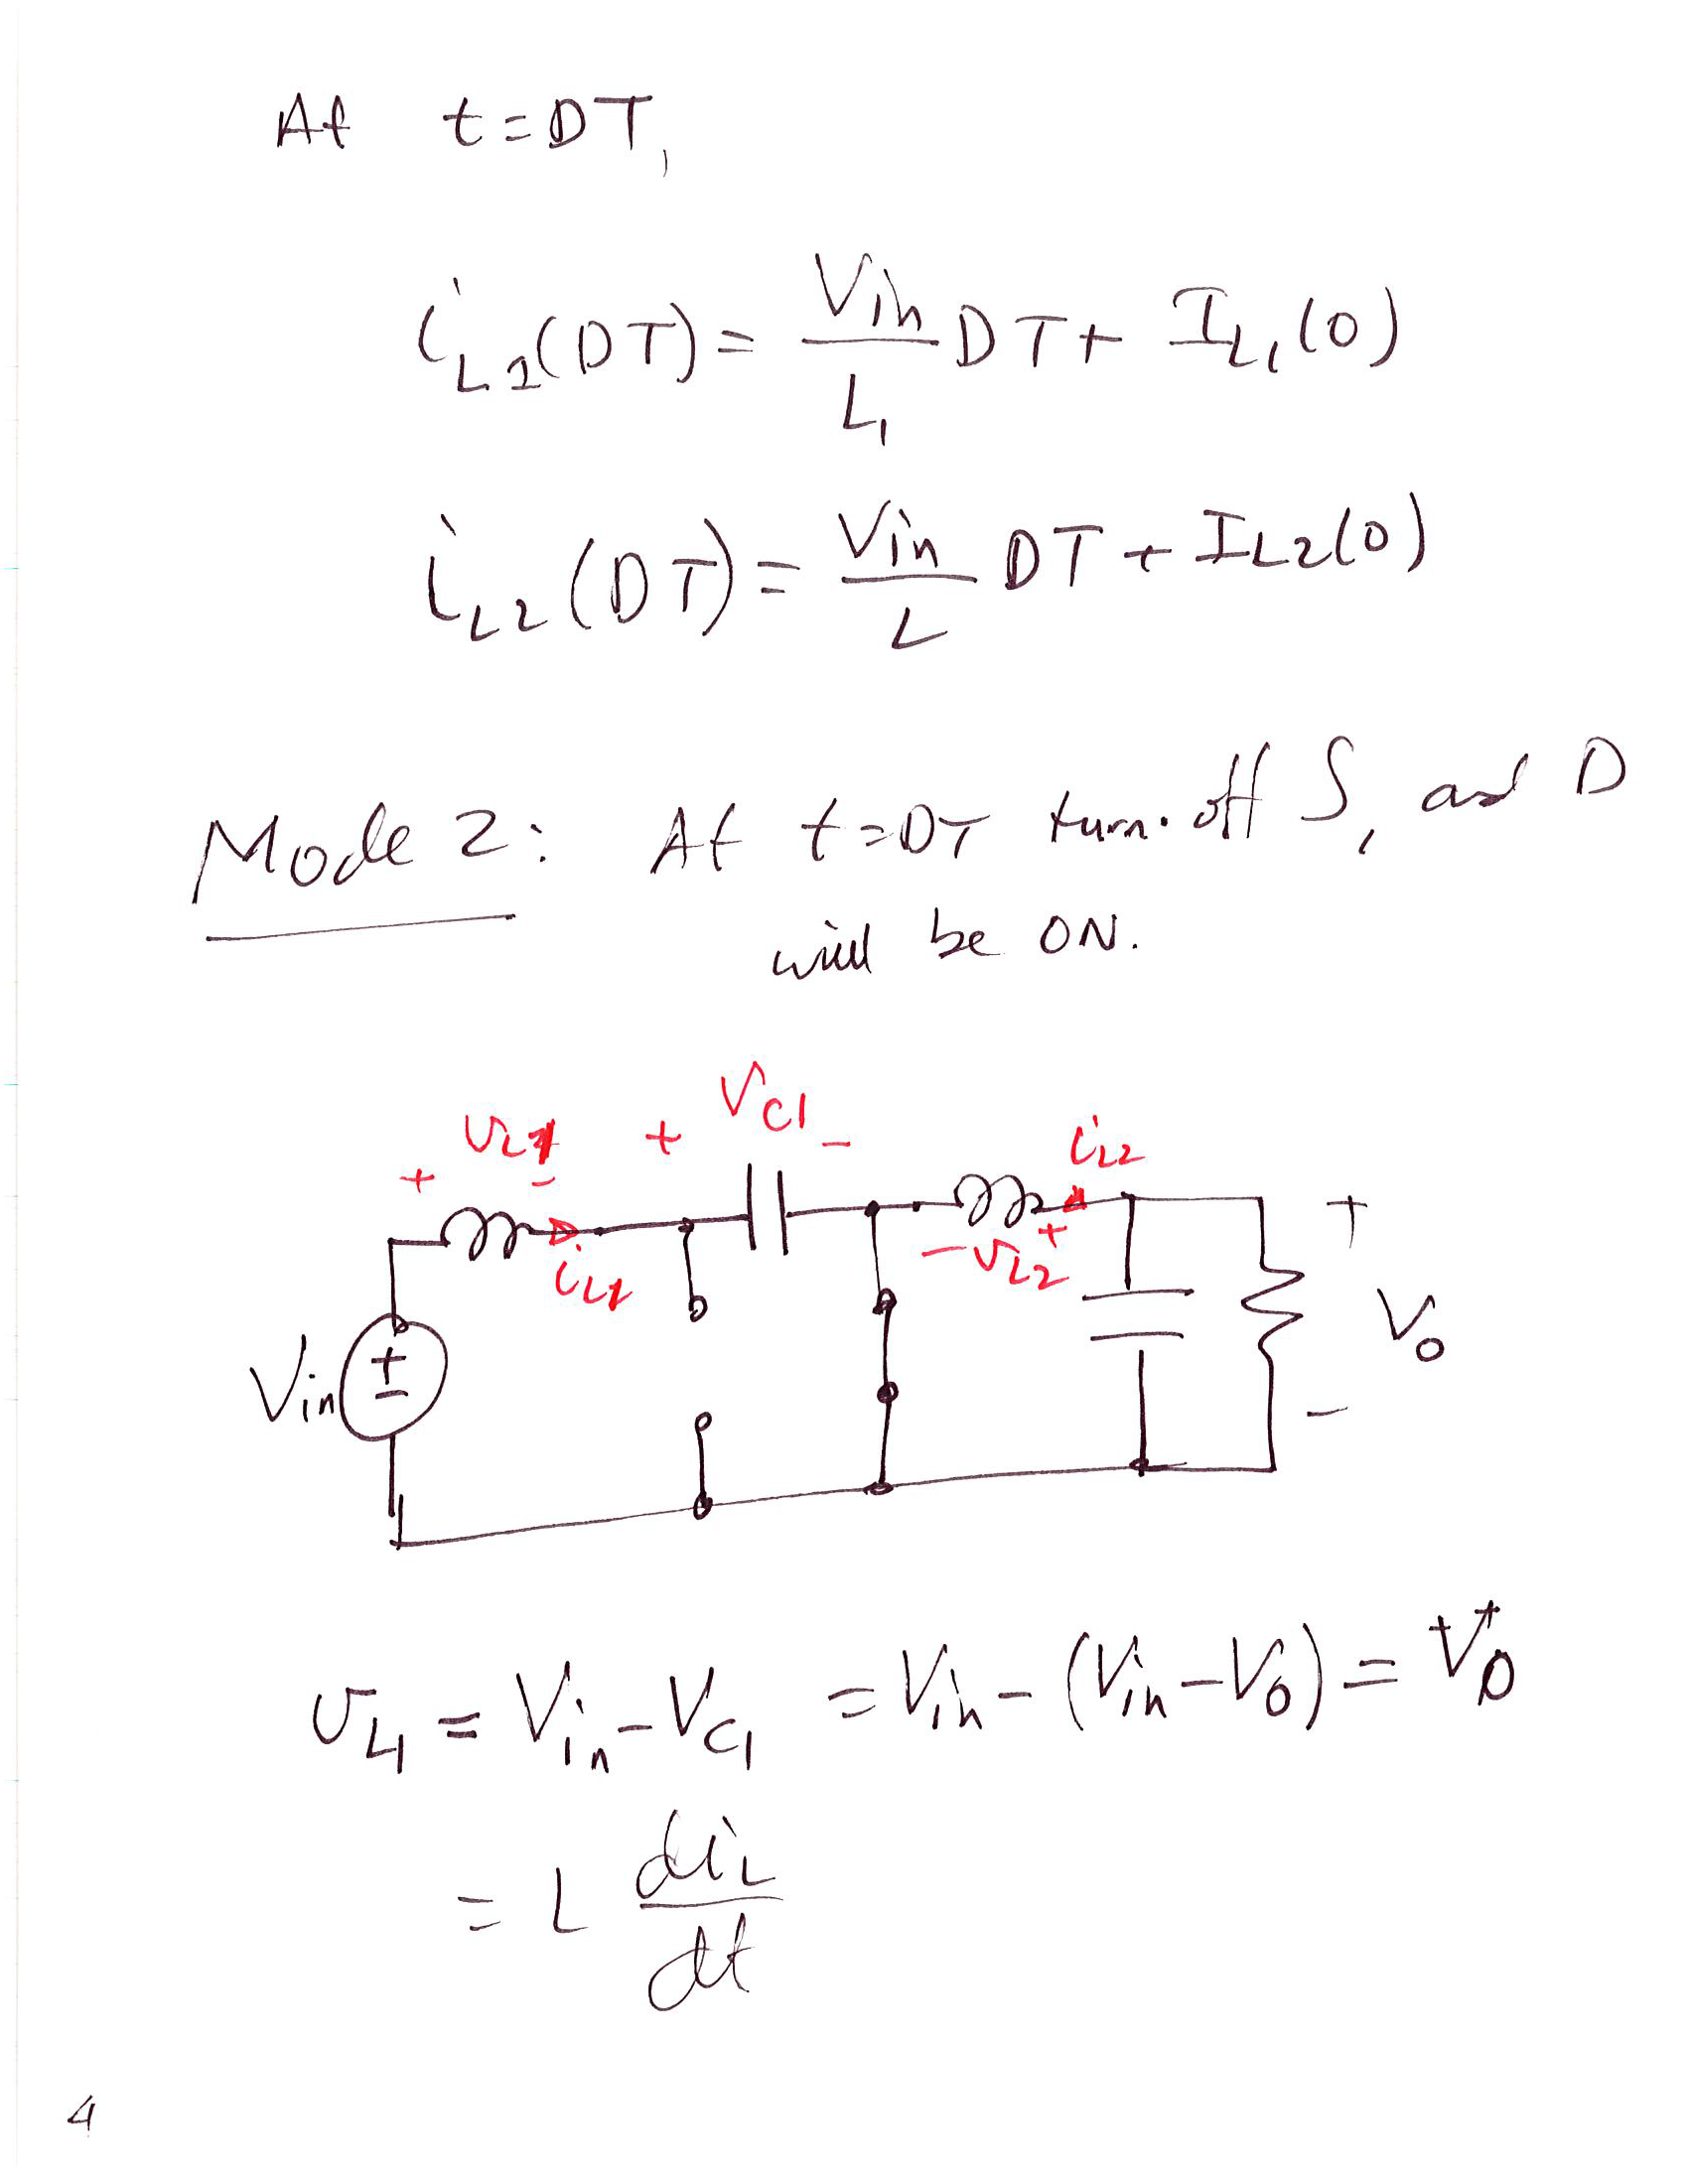 At t=DT,
i_L1(DT) = Vin/L1 DT + I_L1(0)
i_L2(DT) = Vin/L DT + I_L2(0)
Mode 2: At t=DT turn off S1 and D
will be ON.
+ v_L1 - + V_C1 - i_L2
i_L1 - v_L2 + +
Vin + - Vo
-
v_L1 = Vin - V_C1 = Vin - (Vin - Vo) = +Vo
= L di_L/dt
4